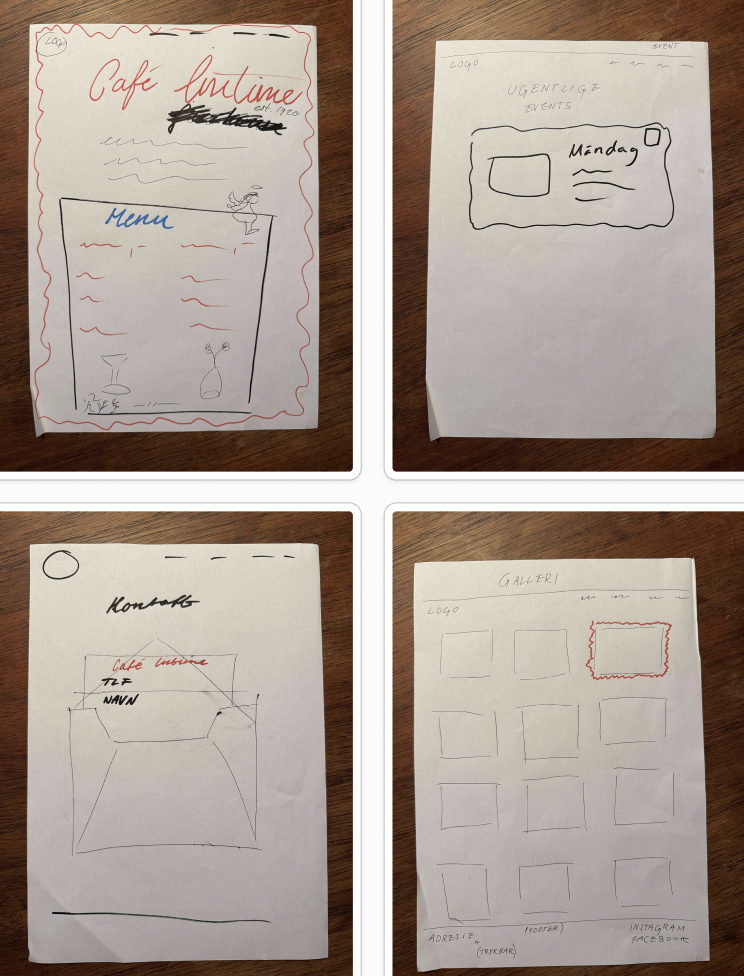 LOGO
Café Intime
est. 1920
Menu
EVENT
LOGO
UGENTLIGE
EVENTS
Mandag
Kontakt
Café Intime
TLF
NAVN
GALLERI
LOGO
ADRESSE
(TRYKBAR)
(FOOTER)
INSTAGRAM
FACEBOOK